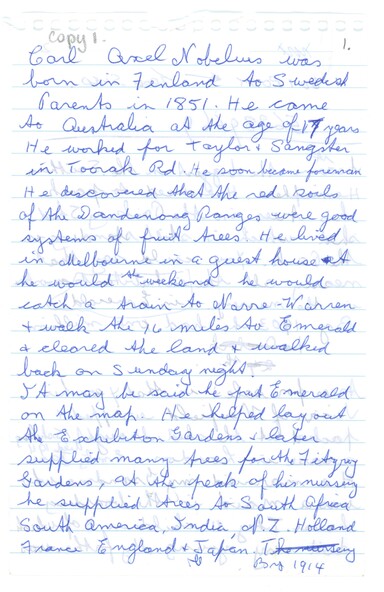 Copy 1.
1.
Carl Axel Nobelius was
born in Finland to Swedish
Parents in 1851. He came
to Australia at the age of 17 years
He worked for Taylor & Sangster
in Toorak Rd. He soon became foreman
He discovered that the red soils
of the Dandenong Ranges were good
systems of fruit trees. He lived
in Melbourne in a guest house At
he would the weekend he would
catch a train to Narre-Warren
& walk the 16 miles to Emerald
& cleared the land & walked
back on Sunday night
It may be said he put Emerald
on the map. He helped lay out
the Exhibition Gardens & later
supplied many trees for the Fitzroy
Gardens, at the peak of his nursery
he supplied trees to South Africa
South America, India, N.Z. Holland
France England & Japan. The nursery
By 1914